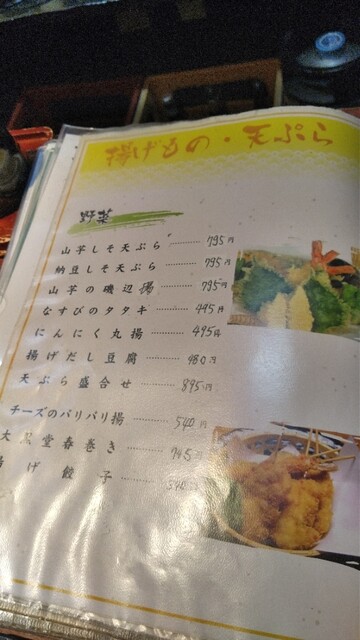 揚げもの・天ぷら
野菜
山芋しそ天ぷら 795円
納豆しそ天ぷら 795円
山芋の磯辺揚 795円
なすびのタタキ 495円
にんにく丸揚 495円
揚げだし豆腐 480円
天ぷら盛合せ 895円
チーズのパリパリ揚 540円
春巻き
げ餃子